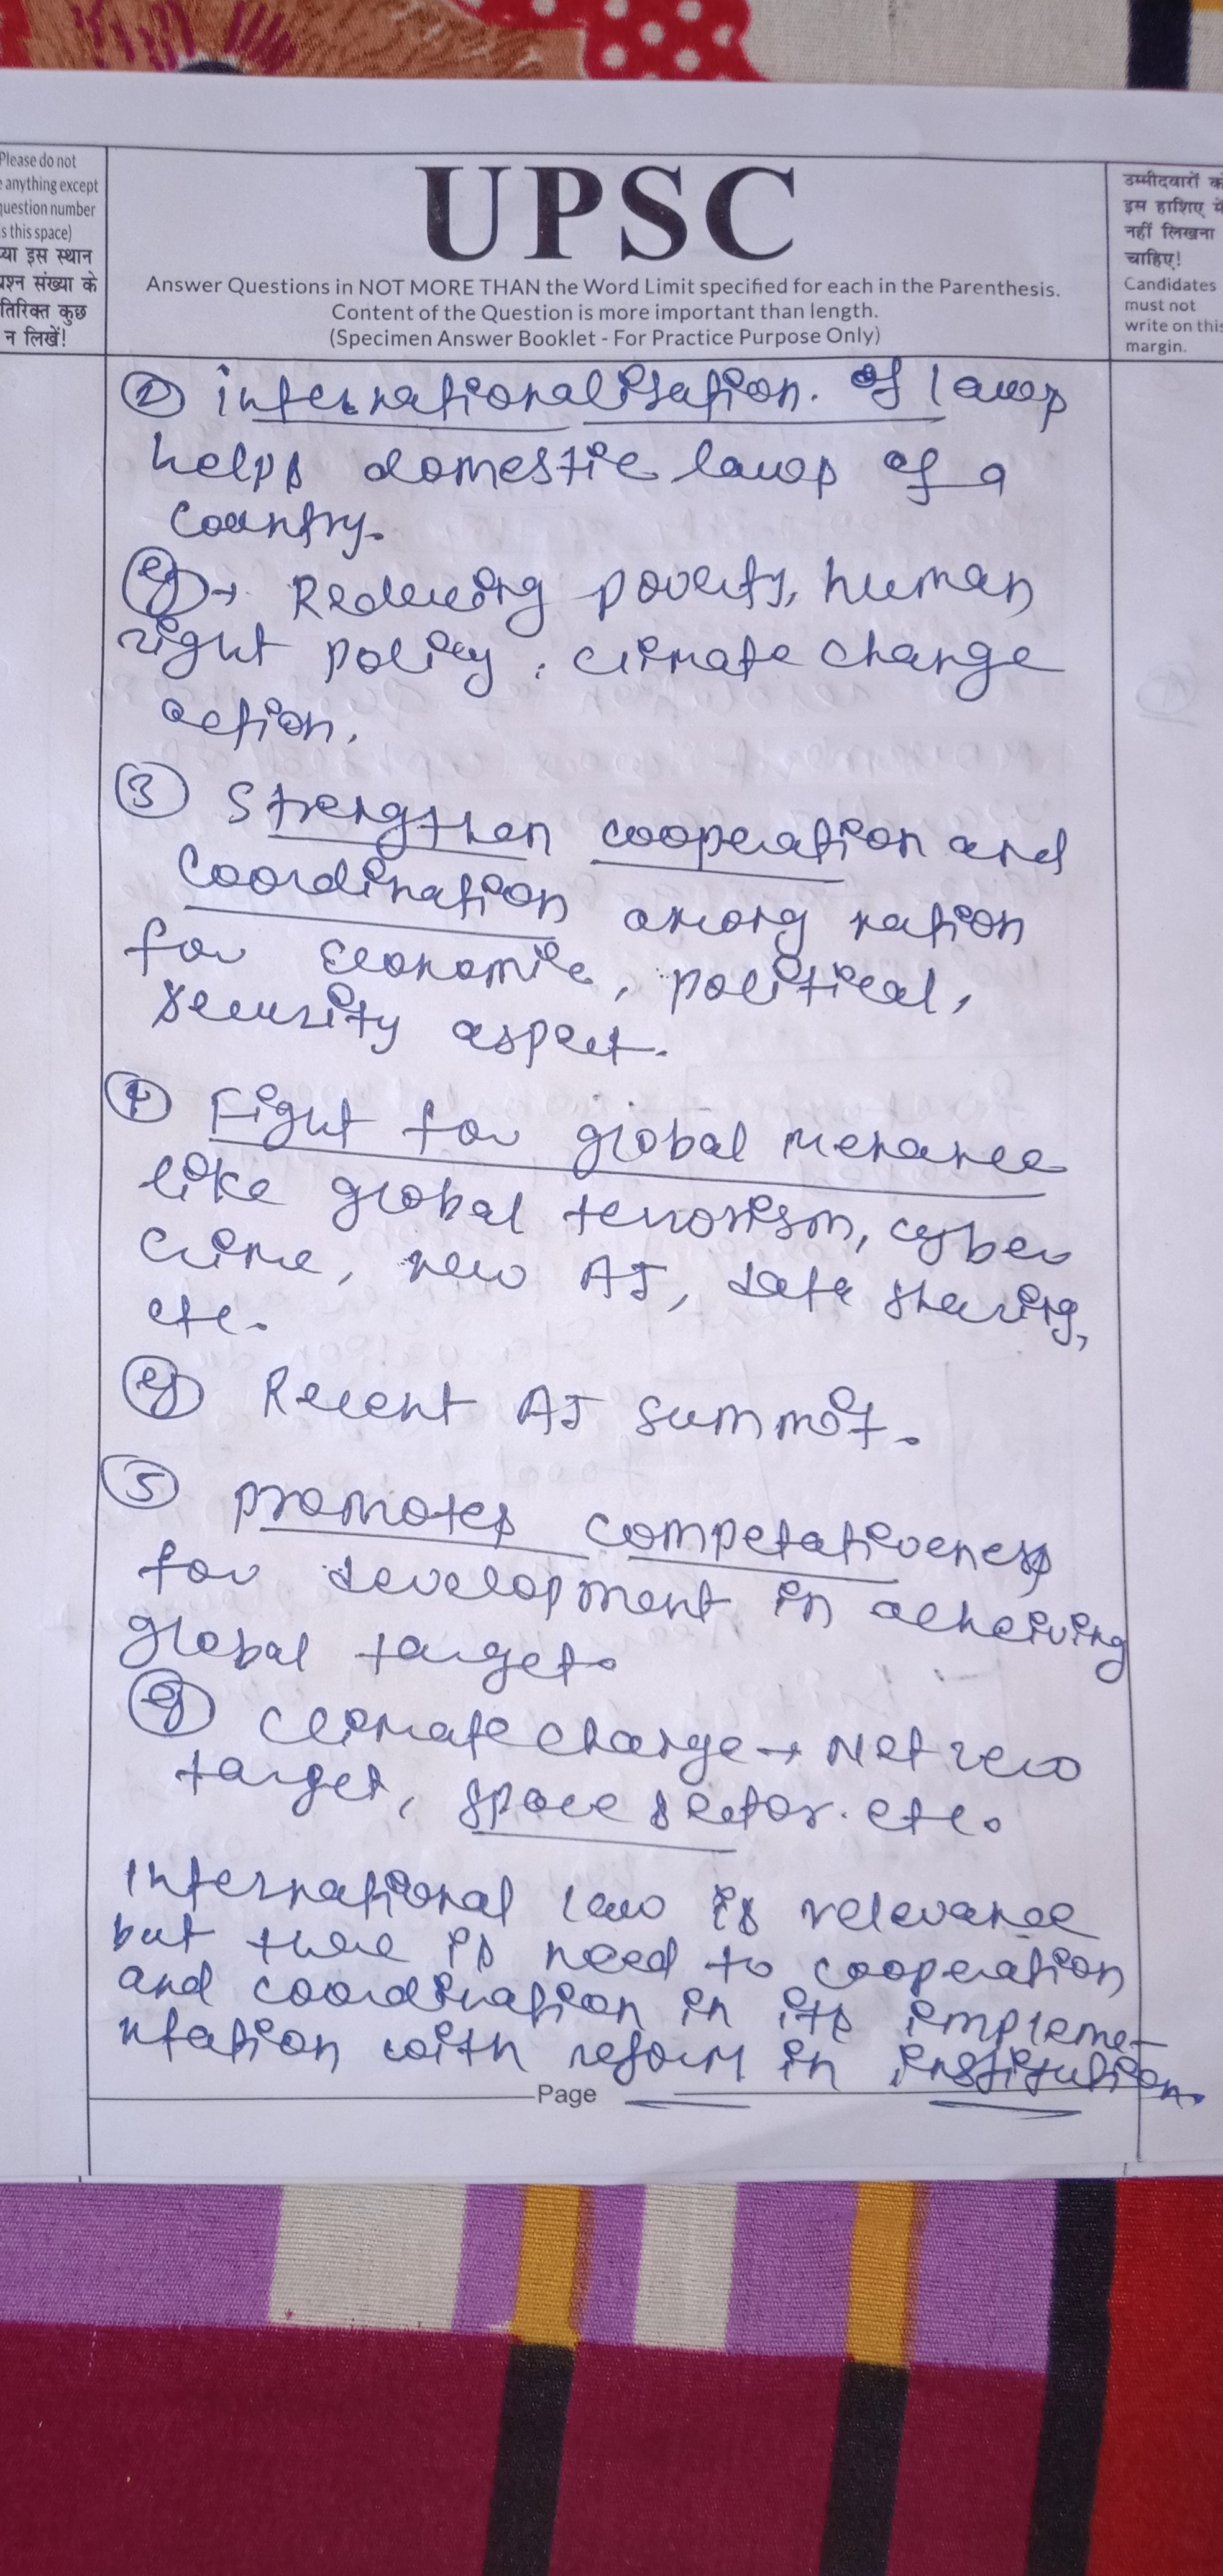 Please do not
anything except
question number
s this space)
या इस स्थान
प्रश्न संख्या के
तिरिक्त कुछ
न लिखें!
UPSC
Answer Questions in NOT MORE THAN the Word Limit specified for each in the Parenthesis.
Content of the Question is more important than length.
(Specimen Answer Booklet - For Practice Purpose Only)
उम्मीदवारों को
इस हाशिए में
नहीं लिखना
चाहिए!
Candidates
must not
write on this
margin.
② internationalisation. of laws
helps domestic laws of a
country.
eg → Reducing poverty, human
right policy, climate change
action.
③ Strengthen cooperation and
coordination among nation
for Economic, political,
security aspect.
④ Fight for global menance
like global terrorism, cyber
crime, new AI, data sharing,
etc.
eg Recent AI summit.
⑤ promotes competativeness
for development in acheiving
global target.
eg climate change → Net zero
target, space sector. etc.
International law is relevance
but there is need to cooperation
and coordination in its impleme-
ntation with reform in institution.
Page